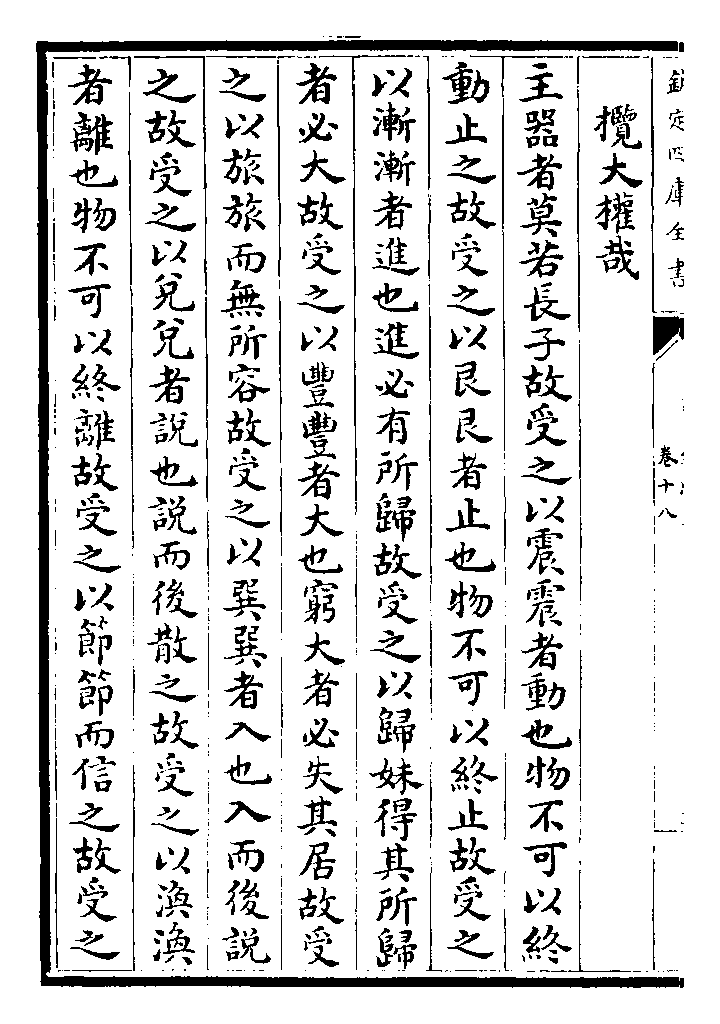 欽定四庫全書
卷十八
攬大權哉
主器者莫若長子故受之以震震者動也物不可以終
動止之故受之以艮艮者止也物不可以終止故受之
以漸漸者進也進必有所歸故受之以歸妹得其所歸
者必大故受之以豐豐者大也窮大者必失其居故受
之以旅旅而無所容故受之以巽巽者入也入而後說
之故受之以兌兌者說也說而後散之故受之以渙渙
者離也物不可以終離故受之以節節而信之故受之